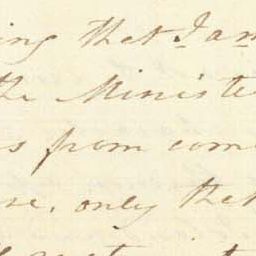 ing that I am
the Ministe
s from com
se, only that